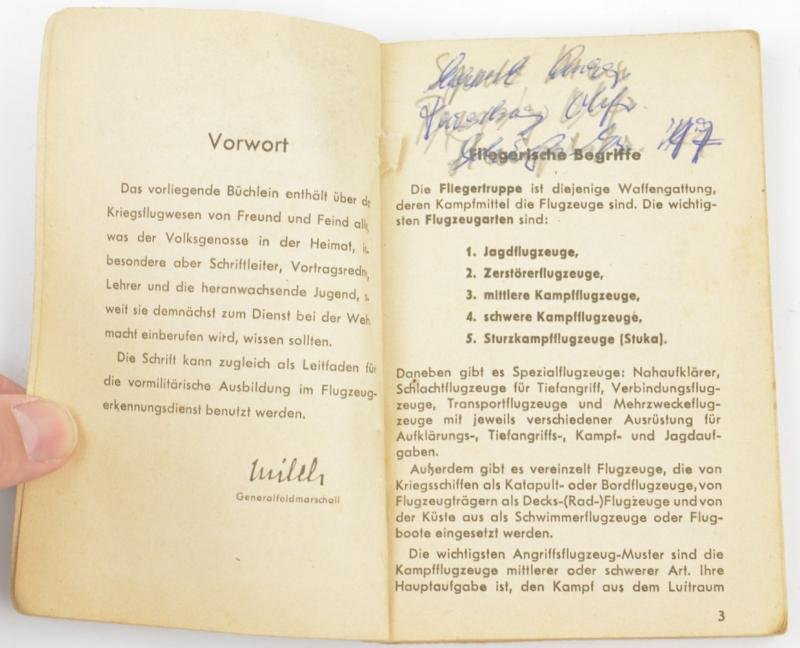 Vorwort
Das vorliegende Büchlein enthält über d
Kriegsflugwesen von Freund und Feind all
was der Volksgenosse in der Heimat, i
besondere aber Schriftleiter, Vortragsredn
Lehrer und die heranwachsende Jugend, s
weit sie demnächst zum Dienst bei der Weh
macht einberufen wird, wissen sollten.
Die Schrift kann zugleich als Leitfaden für
die vormilitärische Ausbildung im Flugzeug-
erkennungsdienst benutzt werden.
Milch
Generalfeldmarschall
Fliegerische Begriffe
Die Fliegertruppe ist diejenige Waffengattung,
deren Kampfmittel die Flugzeuge sind. Die wichtig-
sten Flugzeugarten sind:
1. Jagdflugzeuge,
2. Zerstörerflugzeuge,
3. mittlere Kampfflugzeuge,
4. schwere Kampfflugzeuge,
5. Sturzkampfflugzeuge (Stuka).
Daneben gibt es Spezialflugzeuge: Nahaufklärer,
Schlachtflugzeuge für Tiefangriff, Verbindungsflug-
zeuge, Transportflugzeuge und Mehrzweckeflug-
zeuge mit jeweils verschiedener Ausrüstung für
Aufklärungs-, Tiefangriffs-, Kampf- und Jagdauf-
gaben.
Außerdem gibt es vereinzelt Flugzeuge, die von
Kriegsschiffen als Katapult- oder Bordflugzeuge, von
Flugzeugträgern als Decks-(Rad-)Flugzeuge und von
der Küste aus als Schwimmerflugzeuge oder Flug-
boote eingesetzt werden.
Die wichtigsten Angriffsflugzeug-Muster sind die
Kampfflugzeuge mittlerer oder schwerer Art. Ihre
Hauptaufgabe ist, den Kampf aus dem Luftraum
3